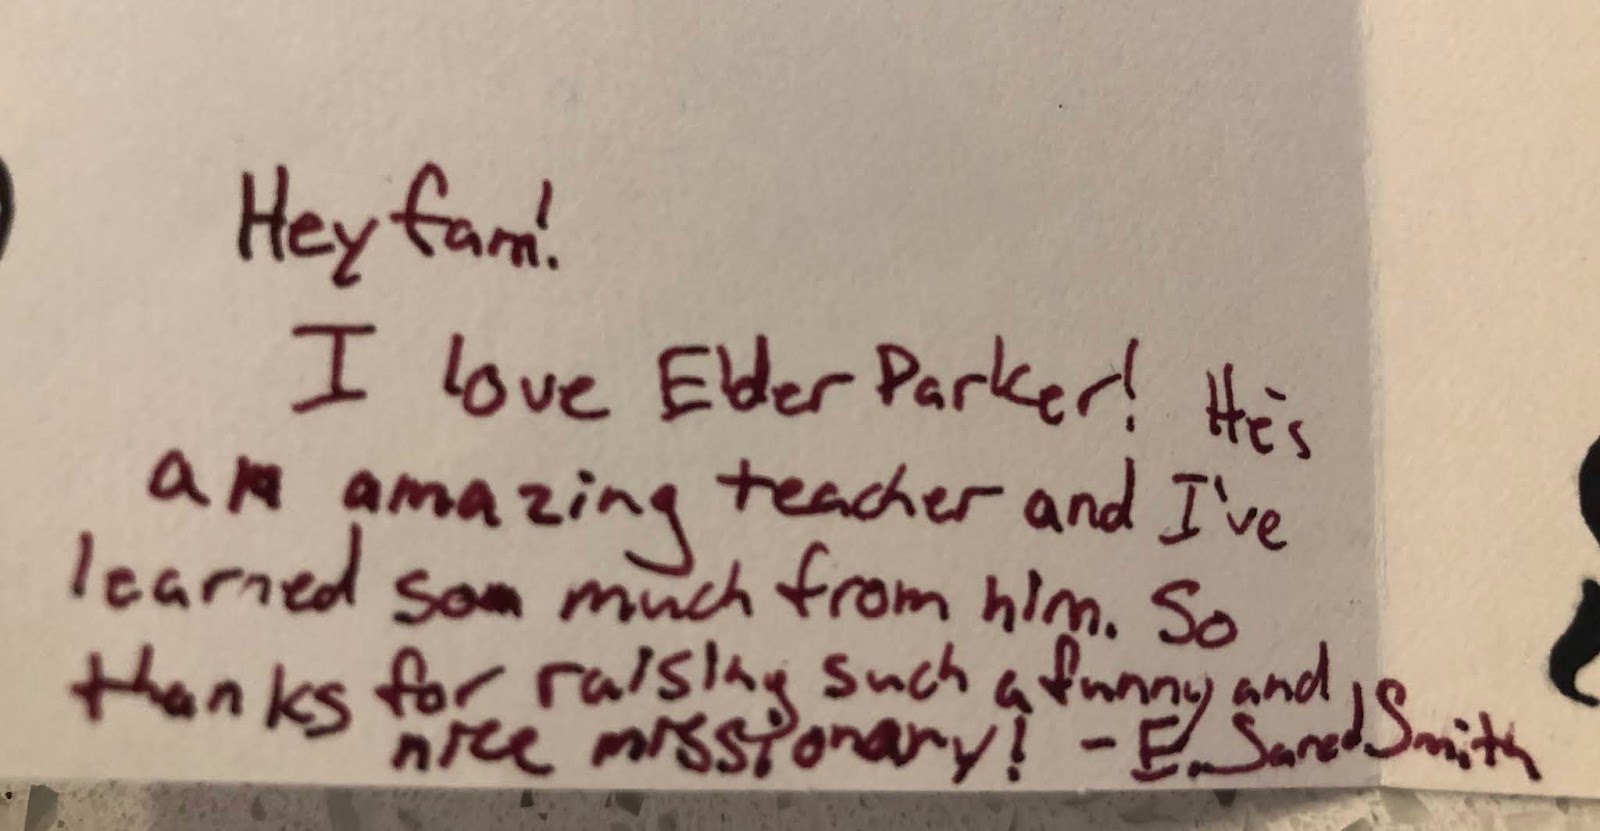 Hey fam!
I love Elder Parker! He's
an amazing teacher and I've
learned so much from him. So
thanks for raising such a funny and
nice missionary! - E. Jared Smith